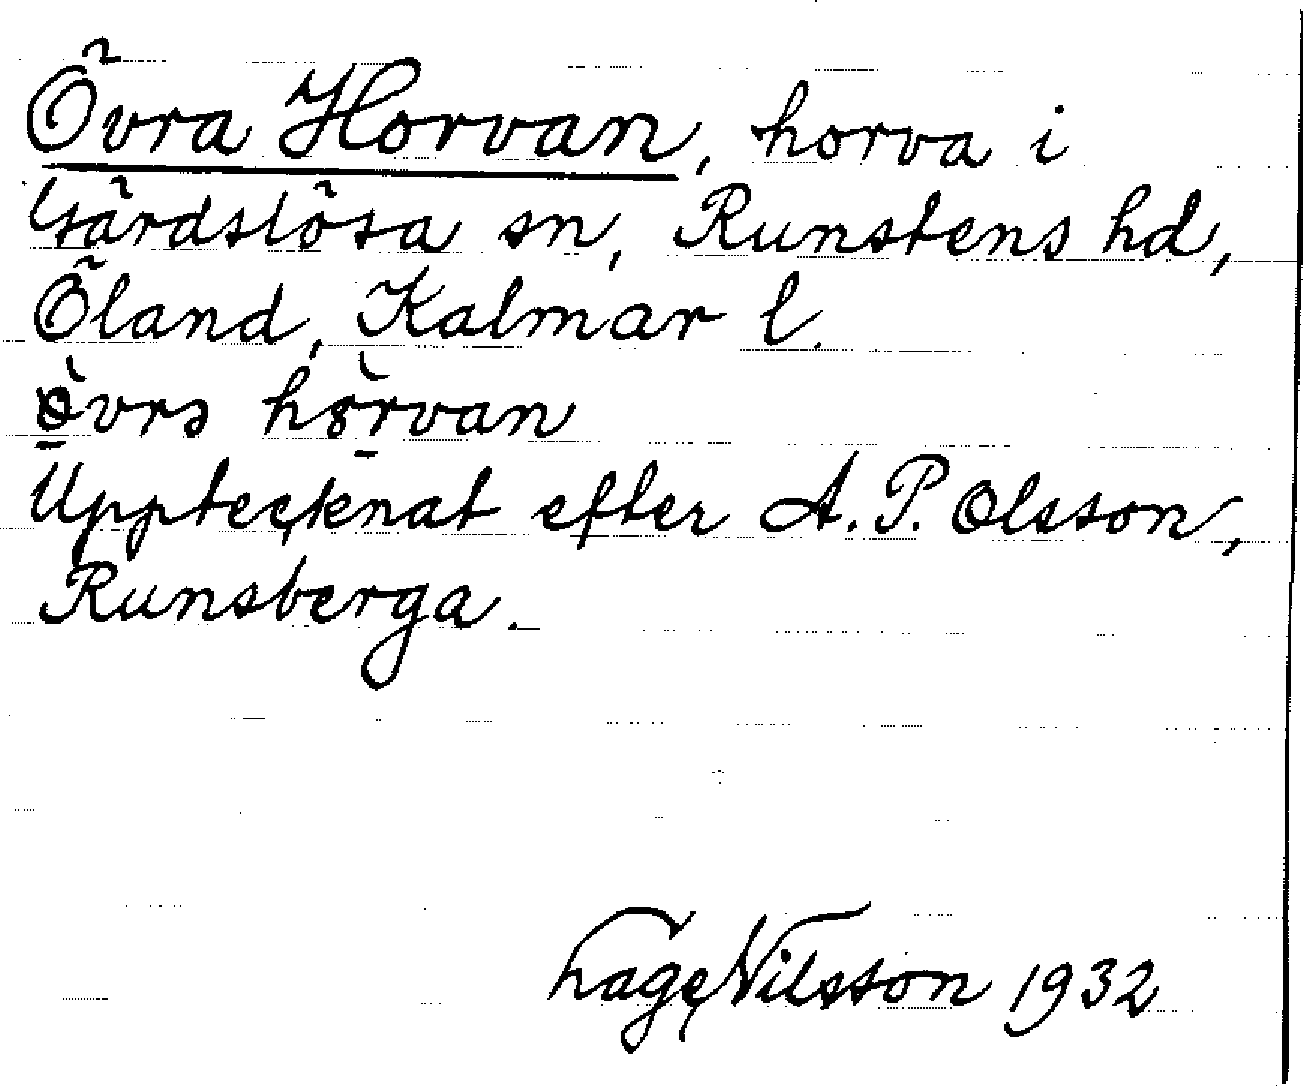 Övra Horvan, horva i
Gärdslösa sn, Runstens hd,
Öland, Kalmar l.
òvrə hòrvan
Upptecknat efter A. P. Olsson,
Runsberga.
Tage Nilsson 1932